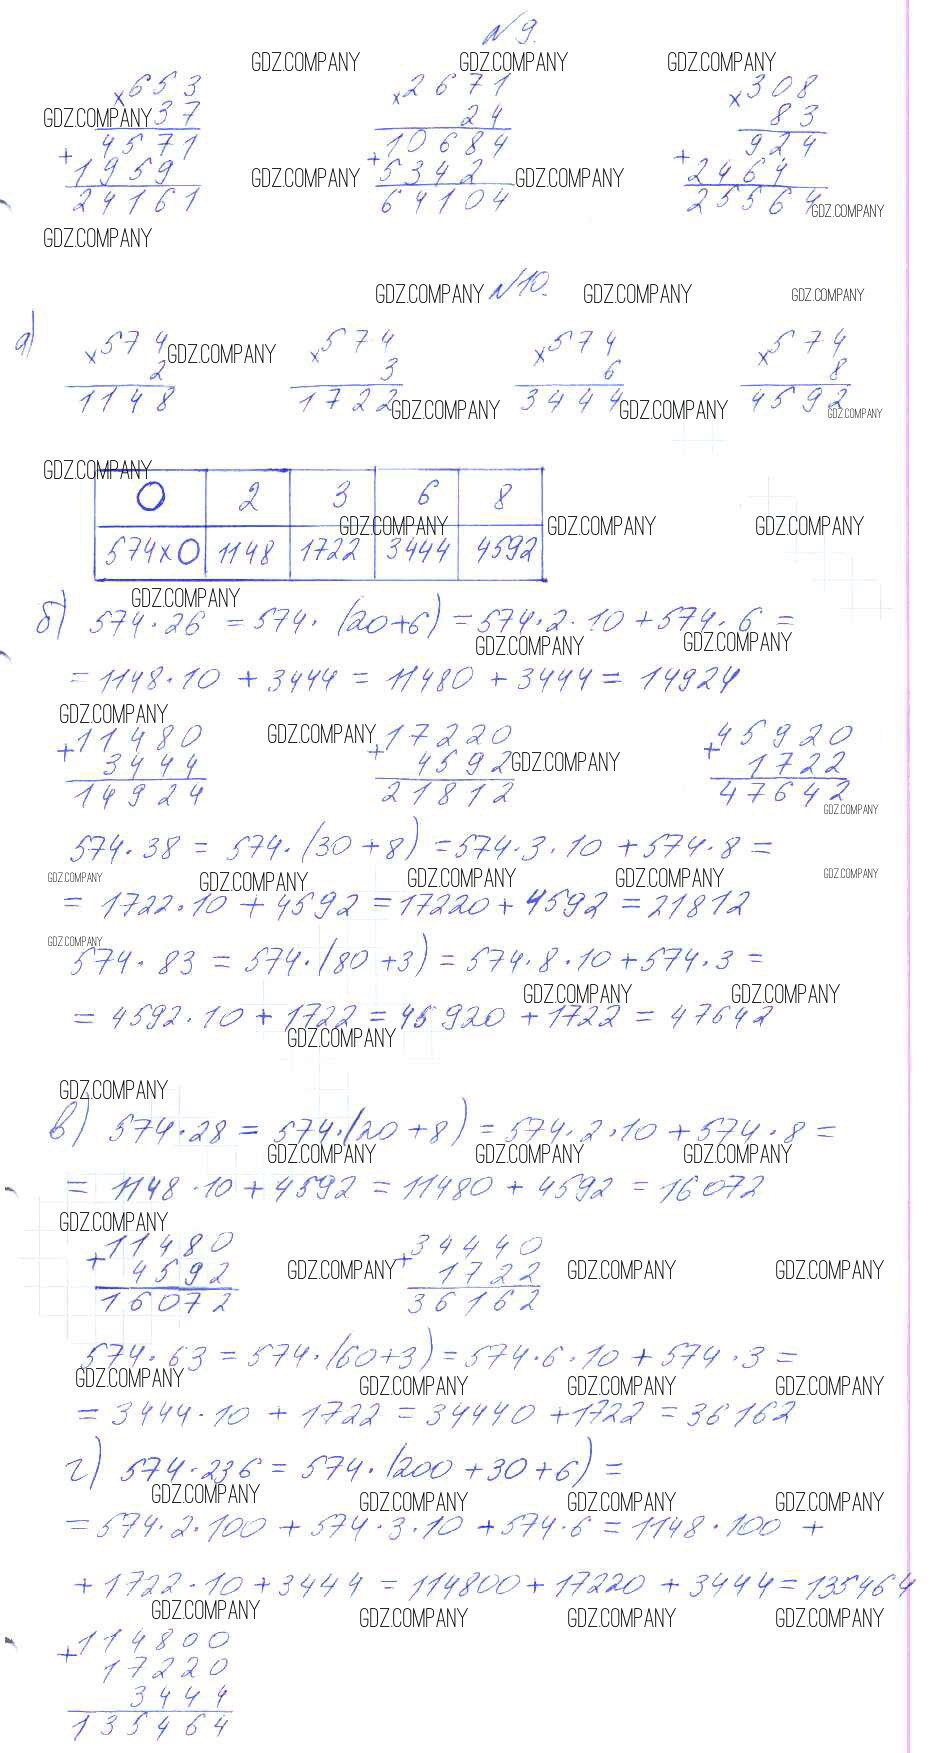 №9.
GDZ.COMPANY GDZ.COMPANY GDZ.COMPANY
×653 ×2671 ×308
GDZ.COMPANY 37 24 83
4571 10684 924
+1959 GDZ.COMPANY +5342 GDZ.COMPANY +2464
24161 64104 25564 GDZ.COMPANY
GDZ.COMPANY
GDZ.COMPANY №10. GDZ.COMPANY GDZ.COMPANY
а) ×574 ×574 ×574 ×574
2 GDZ.COMPANY 3 6 8
1148 1722 GDZ.COMPANY 3444 GDZ.COMPANY 4592 GDZ.COMPANY
GDZ.COMPANY
O 2 3 6 8
GDZ.COMPANY GDZ.COMPANY GDZ.COMPANY
574×O 1148 1722 3444 4592
GDZ.COMPANY
б) 574·26 = 574·(20+6) = 574·2·10+574·6 =
GDZ.COMPANY GDZ.COMPANY
= 1148·10 + 3444 = 11480 + 3444 = 14924
GDZ.COMPANY
+11480 GDZ.COMPANY +17220 +45920
3444 4592 GDZ.COMPANY 1722
14924 21812 47642
GDZ.COMPANY
574·38 = 574·(30+8) = 574·3·10 + 574·8 =
GDZ.COMPANY GDZ.COMPANY GDZ.COMPANY GDZ.COMPANY GDZ.COMPANY
= 1722·10 + 4592 = 17220 + 4592 = 21812
GDZ.COMPANY
574·83 = 574·(80+3) = 574·8·10+574·3 =
GDZ.COMPANY GDZ.COMPANY
= 4592·10 + 1722 = 45920 + 1722 = 47642
GDZ.COMPANY
GDZ.COMPANY
в) 574·28 = 574·(20+8) = 574·2·10+574·8 =
GDZ.COMPANY GDZ.COMPANY GDZ.COMPANY
= 1148·10 + 4592 = 11480 + 4592 = 16072
GDZ.COMPANY
+11480 +34440
4592 GDZ.COMPANY 1722 GDZ.COMPANY GDZ.COMPANY
16072 36162
574·63 = 574·(60+3) = 574·6·10 + 574·3 =
GDZ.COMPANY GDZ.COMPANY GDZ.COMPANY GDZ.COMPANY
= 3444·10 + 1722 = 34440 + 1722 = 36162
г) 574·236 = 574·(200+30+6) =
GDZ.COMPANY GDZ.COMPANY GDZ.COMPANY GDZ.COMPANY
= 574·2·100 + 574·3·10 + 574·6 = 1148·100 +
+ 1722·10 + 3444 = 114800 + 17220 + 3444 = 135464
GDZ.COMPANY GDZ.COMPANY GDZ.COMPANY GDZ.COMPANY
+114800
17220
3444
135464